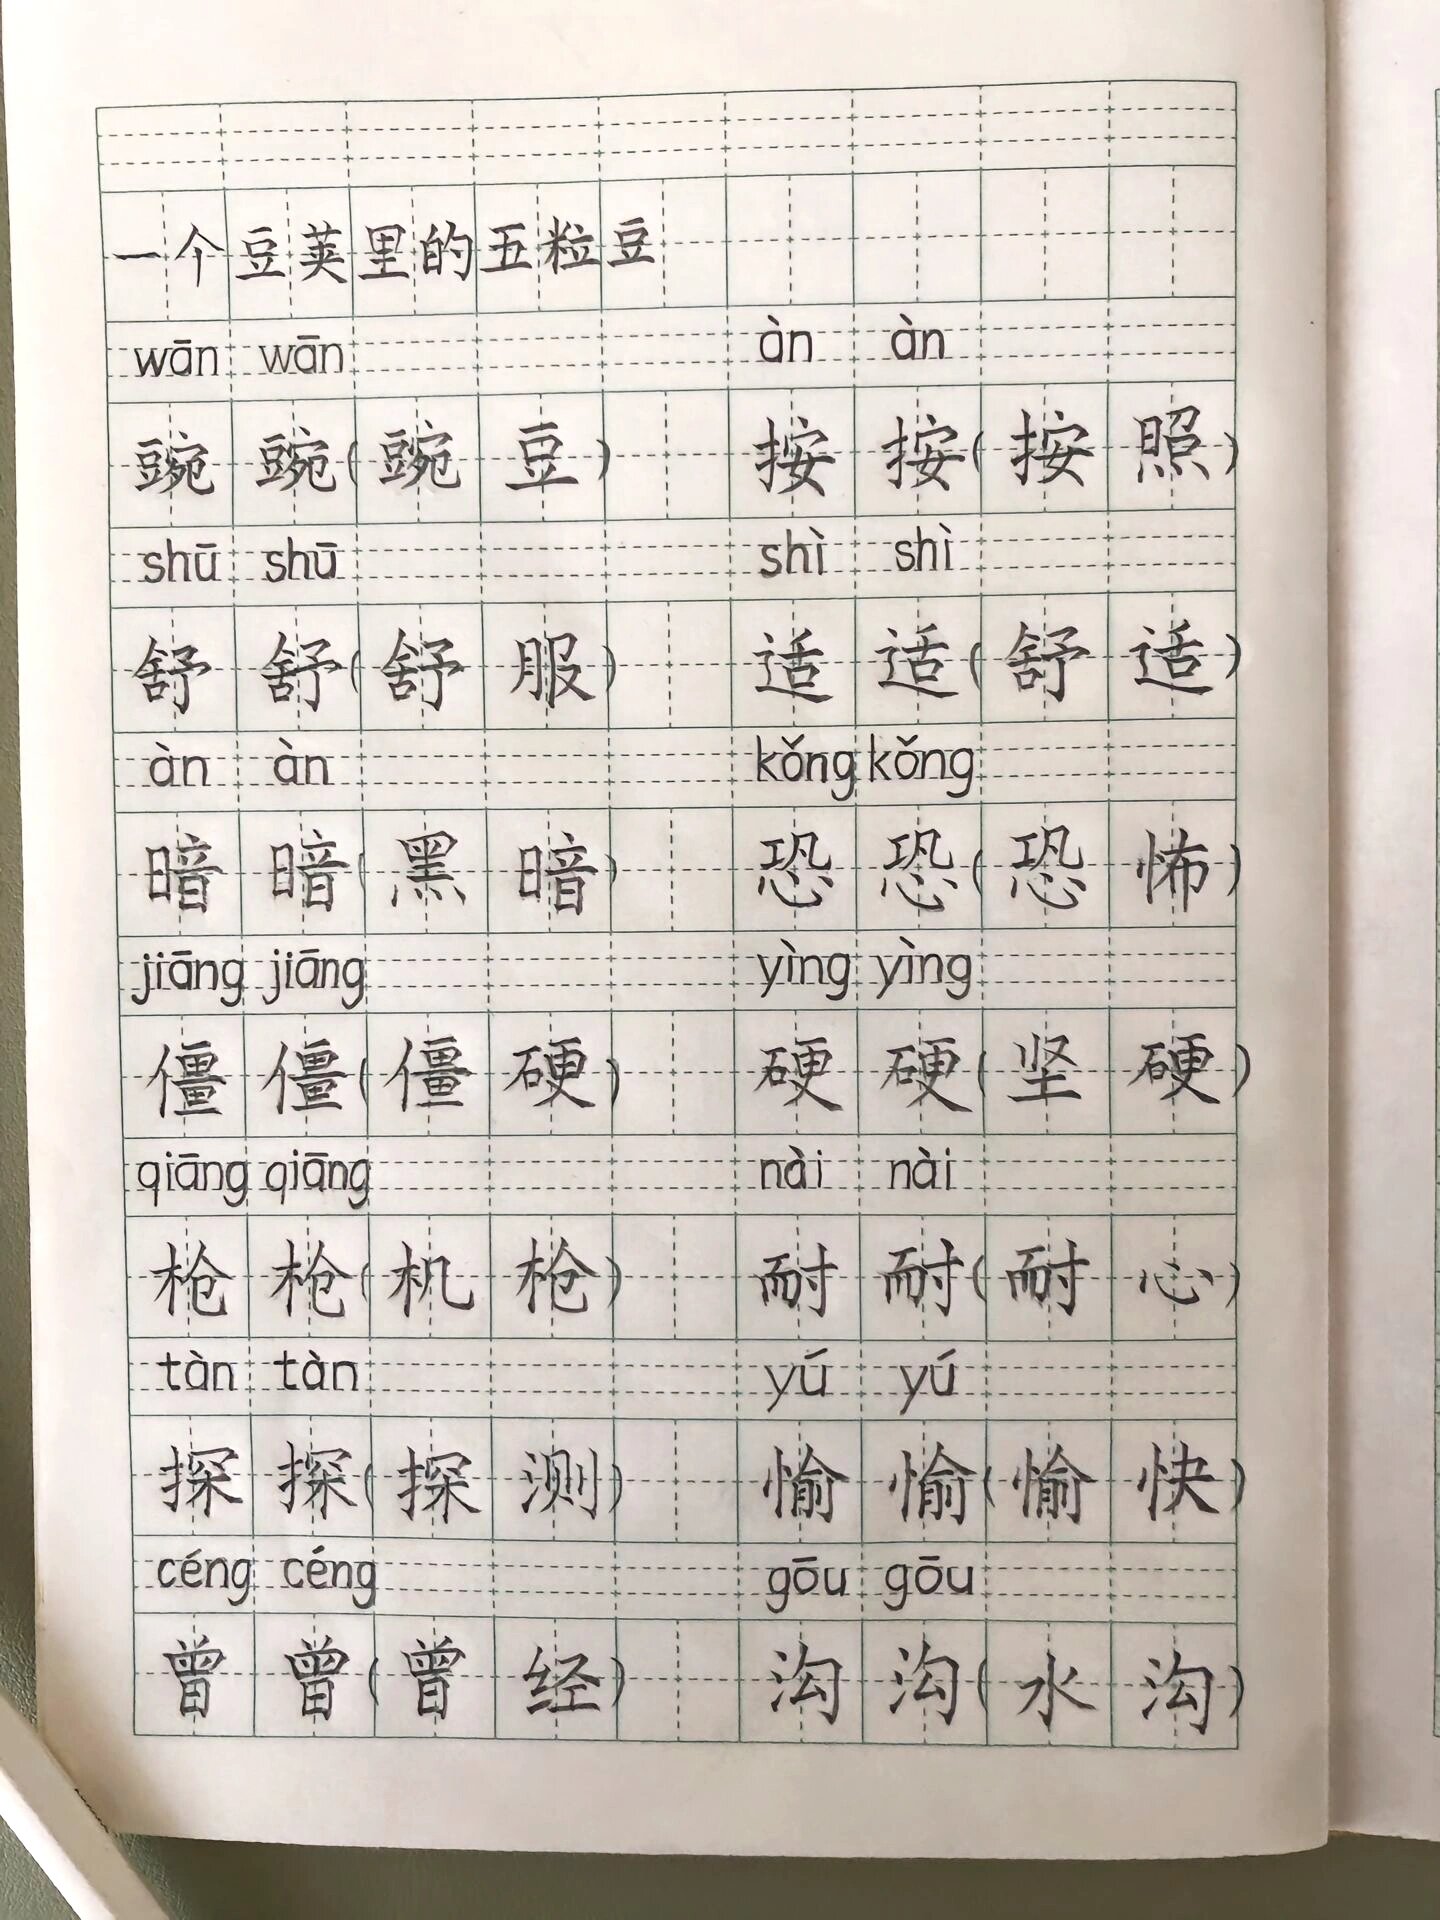 一个豆荚里的五粒豆
wān wān àn àn
豌 豌(豌 豆) 按 按(按 照)
shū shū shì shì
舒 舒(舒 服) 适 适(舒 适)
àn àn kǒng kǒng
暗 暗(黑 暗) 恐 恐(恐 怖)
jiāng jiāng yìng yìng
僵 僵(僵 硬) 硬 硬(坚 硬)
qiāng qiāng nài nài
枪 枪(机 枪) 耐 耐(耐 心)
tàn tàn yú yú
探 探(探 测) 愉 愉(愉 快)
céng céng gōu gōu
曾 曾(曾 经) 沟 沟(水 沟)